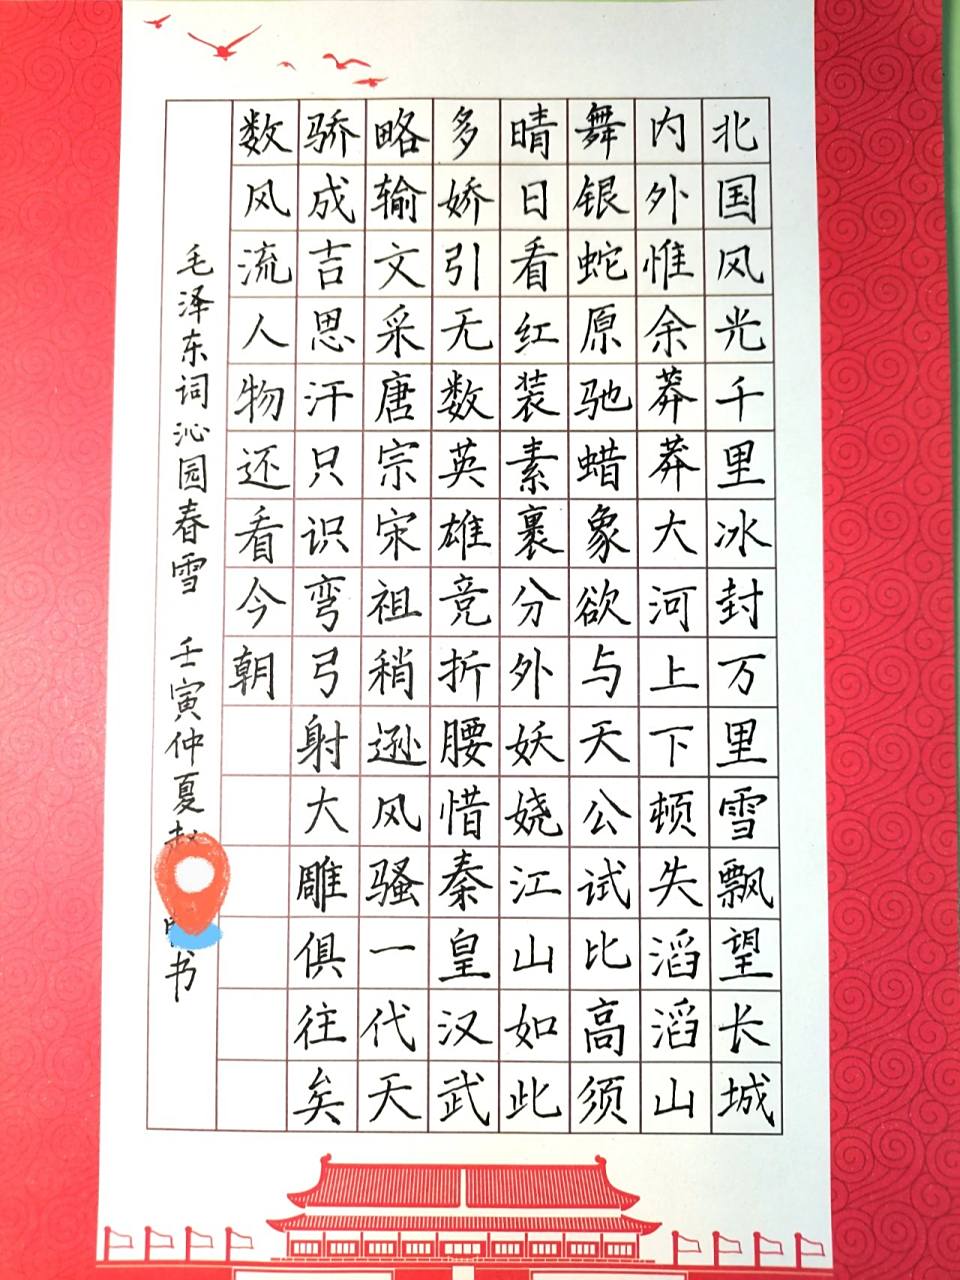 北国风光千里冰封万里雪飘望长城
内外惟余莽莽大河上下顿失滔滔山
舞银蛇原驰蜡象欲与天公试比高须
晴日看红装素裹分外妖娆江山如此
多娇引无数英雄竞折腰惜秦皇汉武
略输文采唐宗宋祖稍逊风骚一代天
骄成吉思汗只识弯弓射大雕俱往矣
数风流人物还看今朝
毛泽东词沁园春雪 壬寅仲夏 书